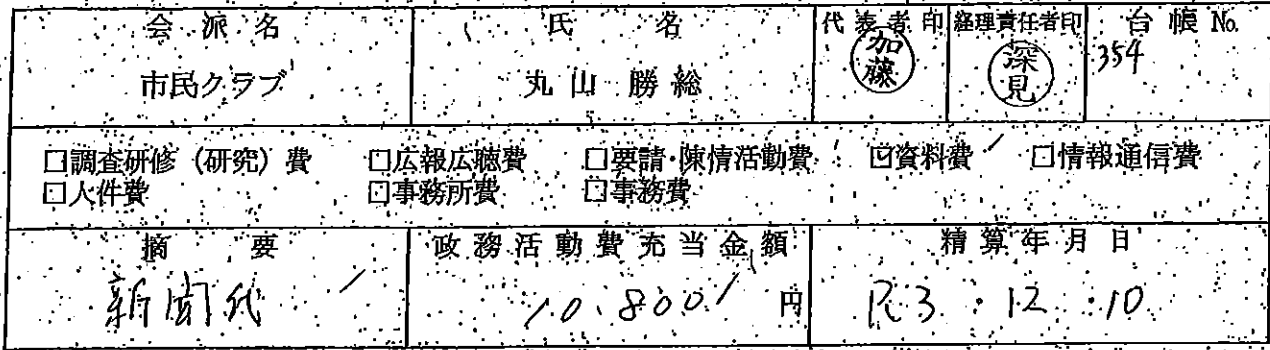 会派名 氏名 代表者印 経理責任者印 台帳No.
市民クラブ 丸山 勝総 加藤 深見 354
□調査研修（研究）費 □広報広聴費 □要請・陳情活動費 ☑資料費 □情報通信費
□人件費 □事務所費 □事務費
摘要 政務活動費充当金額 精算年月日
新聞代 10,800 円 R3.12.10